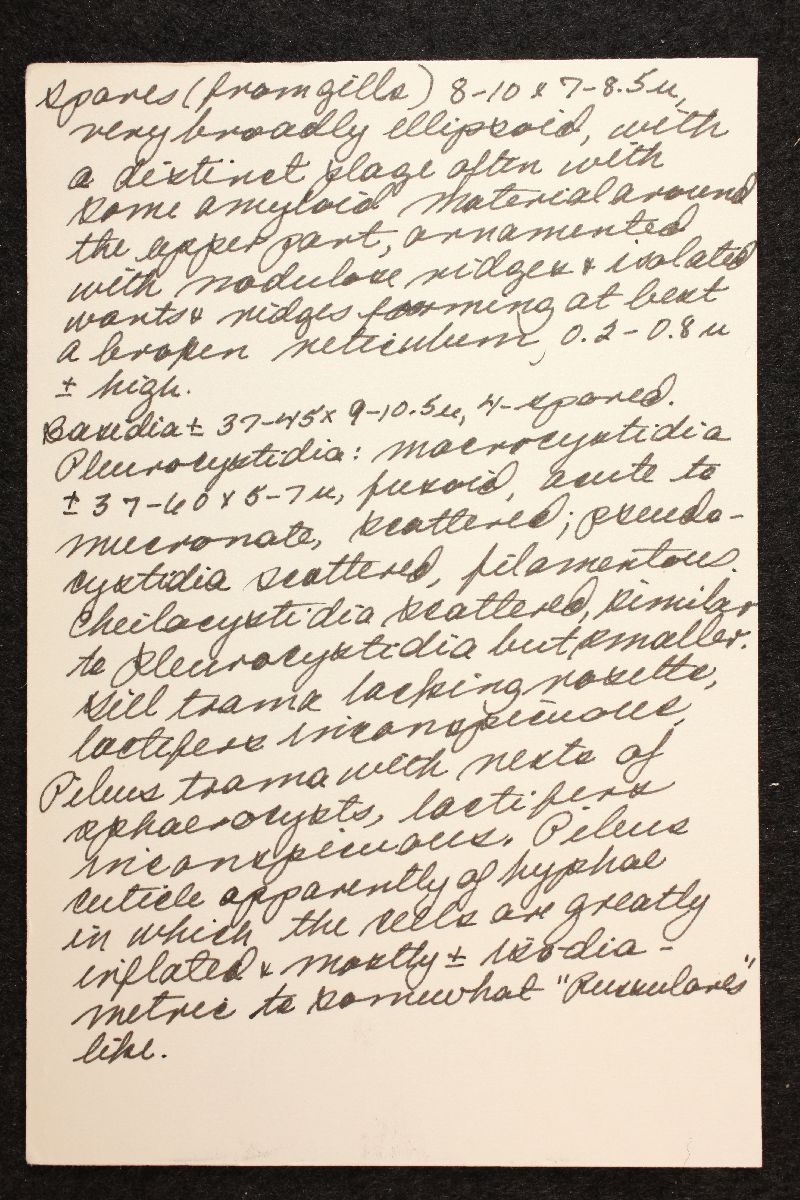 Spores (from gills) 8-10 x 7-8.5 u,
very broadly ellipsoid, with
a distinct plage often with
some amyloid material around
the upper part, ornamented
with nodulose ridges & isolated
warts & ridges forming at best
a broken reticulum, 0.2-0.8 u
± high.
Basidia ± 37-45 x 9-10.5 u, 4-spored.
Pleurocystidia: macrocystidia
± 37-60 x 5-7 u, fusoid, acute to
mucronate, scattered; pseudo-
cystidia scattered, filamentous.
Cheilocystidia scattered, similar
to pleurocystidia but smaller.
Gill trama lacking rosette,
lactifers inconspicuous.
Pileus trama with nests of
sphaerocysts, lactifers
inconspicuous. Pileus
cuticle apparently of hyphae
in which the cells are greatly
inflated & mostly ± iso-dia-
metric to somewhat "Russulares"
like.